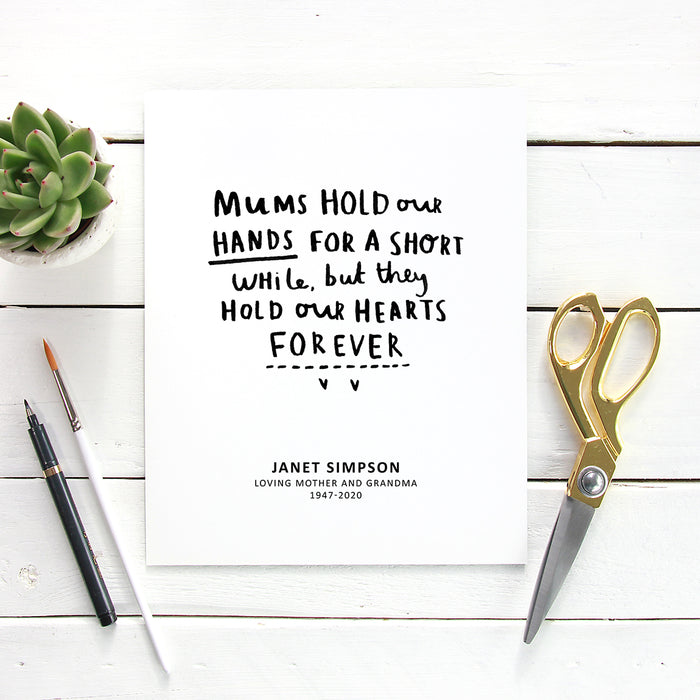 MUMS HOLD OUR
HANDS FOR A SHORT
WHILE, but they
HOLD OUR HEARTS
FOREVER
JANET SIMPSON
LOVING MOTHER AND GRANDMA
1947-2020